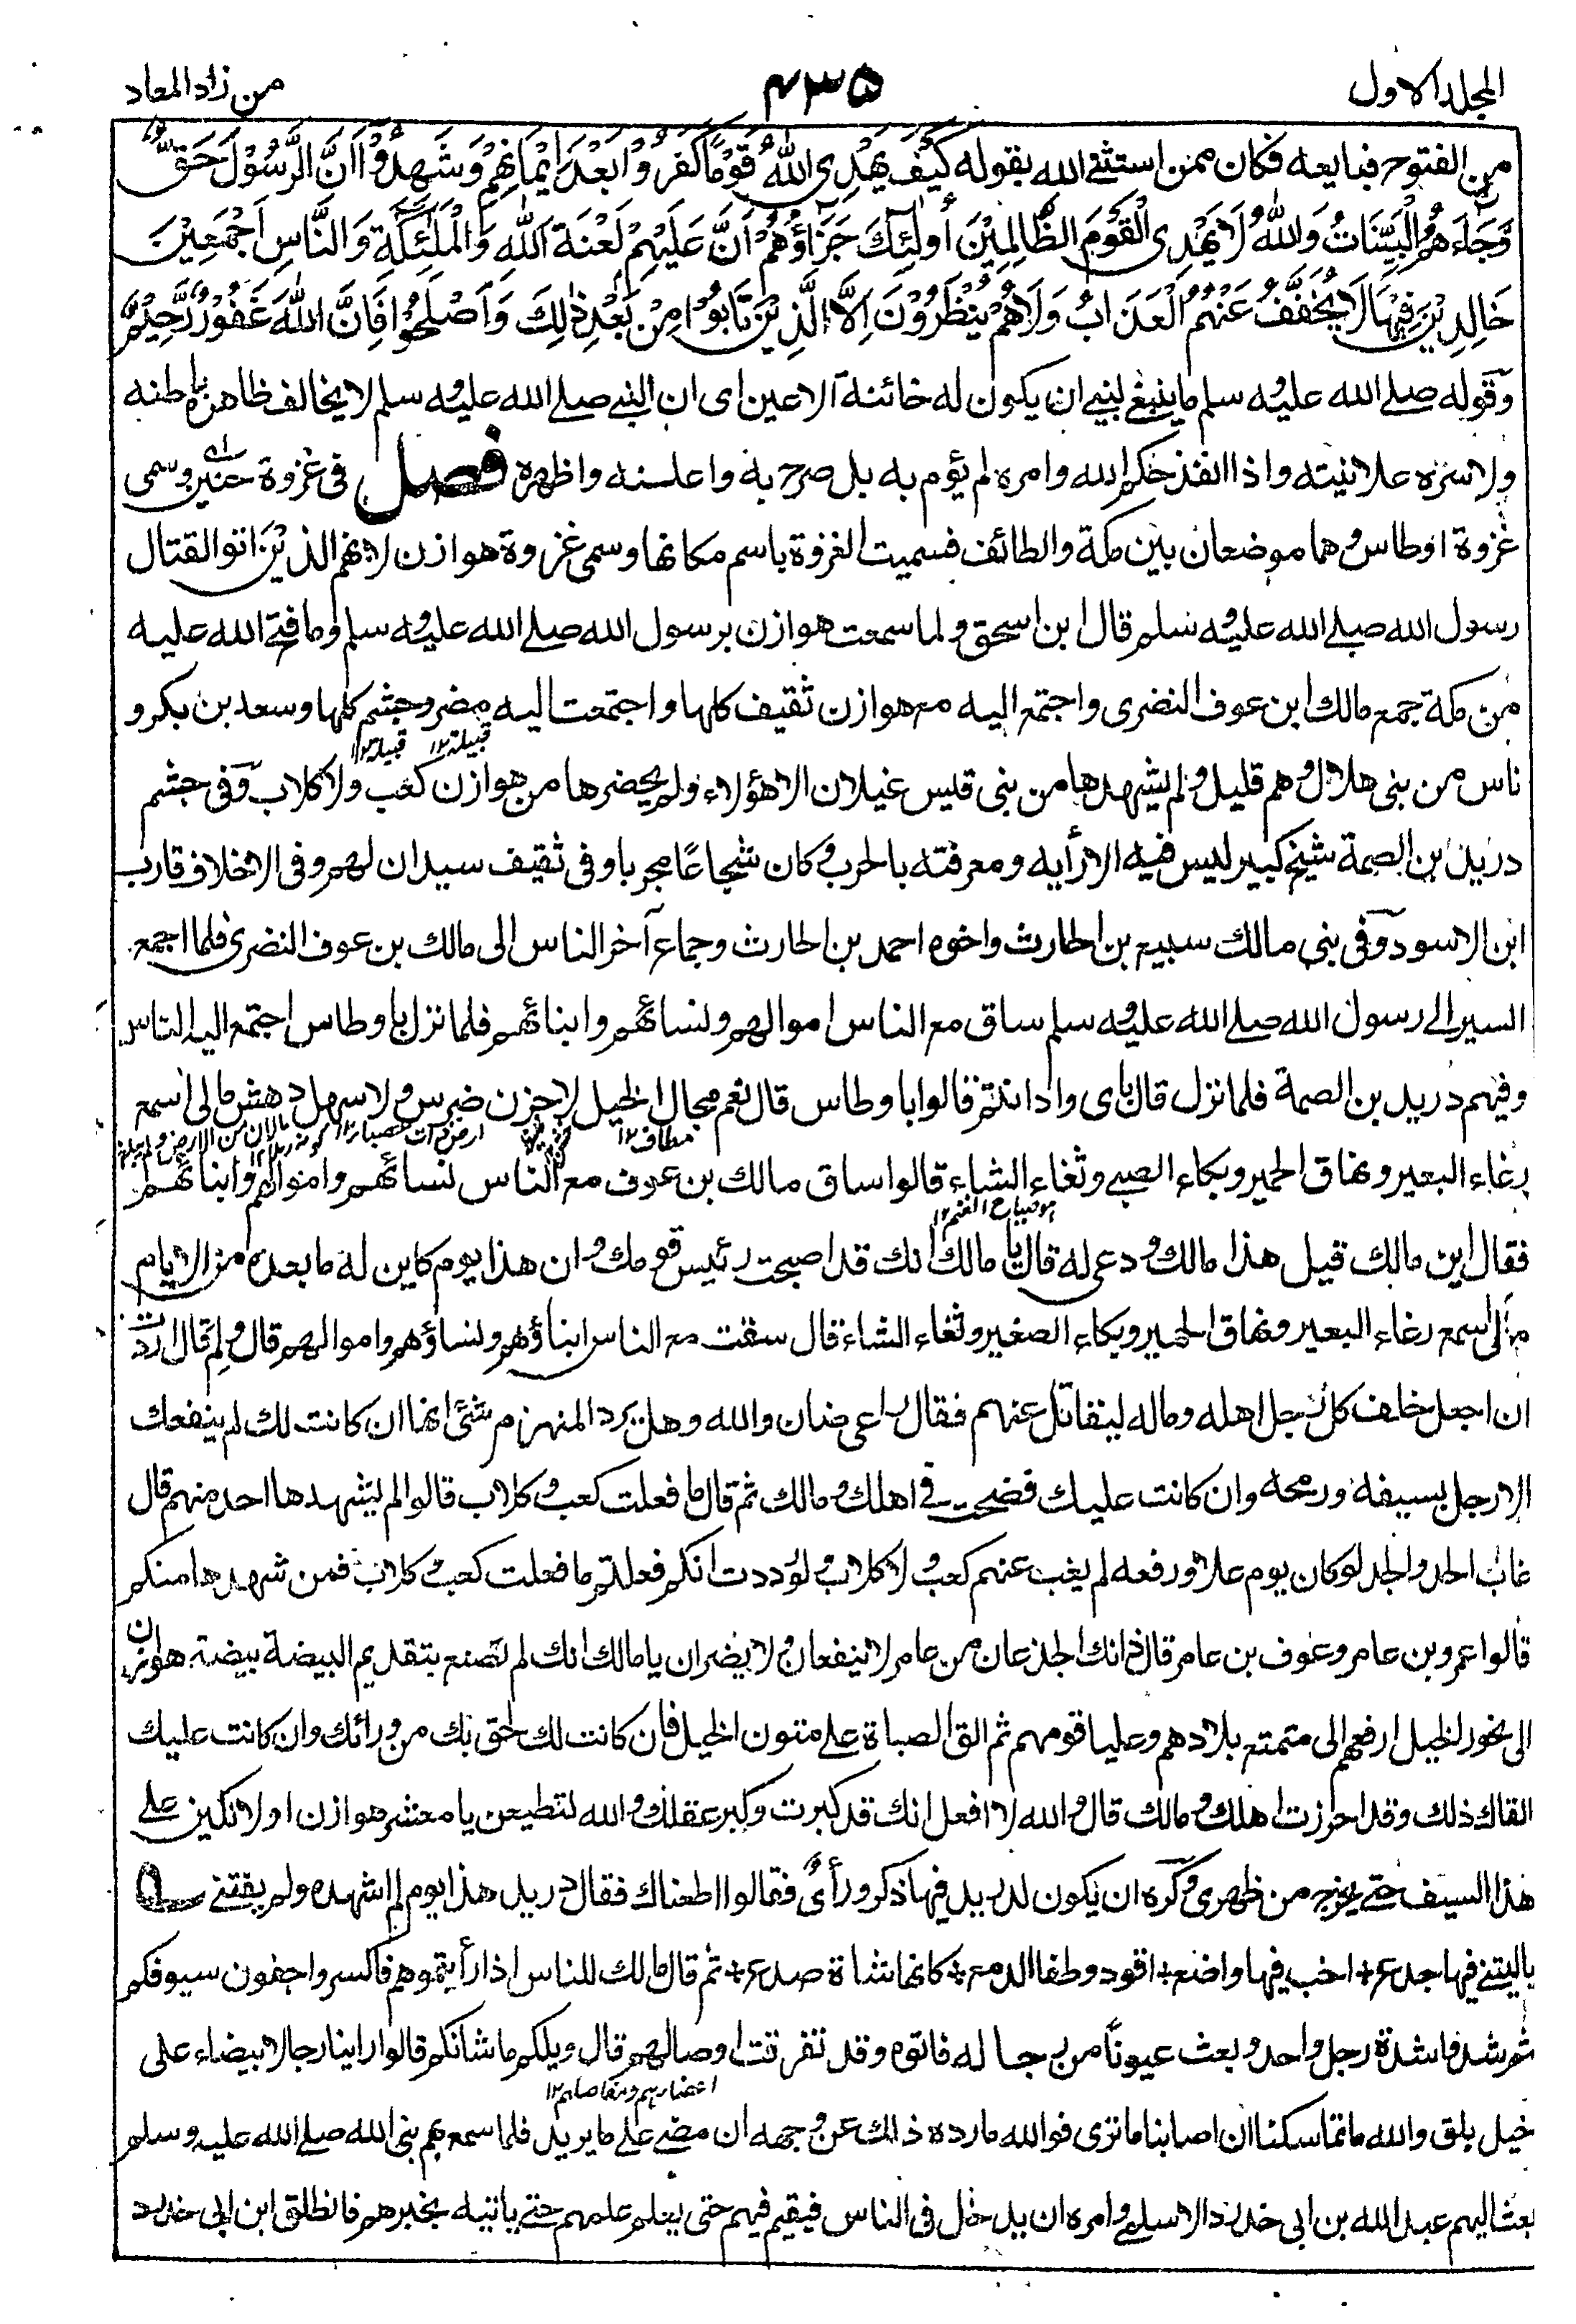 المجلد الاول
٤٣٥
من زاد المعاد
من الفتوح فبايعه فكان ممن استثنى الله بقوله كَيْفَ يَهْدِى اللهُ قَوْمًا كَفَرُوْا بَعْدَ اِيْمَانِهِمْ وَشَهِدُوْا اَنَّ الرَّسُوْلَ حَقٌّ
وَّجَاءَهُمُ الْبَيِّنَاتُ وَاللهُ لَا يَهْدِى الْقَوْمَ الظَّالِمِيْنَ أُولٰئِكَ جَزَاؤُهُمْ اَنَّ عَلَيْهِمْ لَعْنَةَ اللهِ وَالْمَلٰئِكَةِ وَالنَّاسِ اَجْمَعِيْنَ
خَالِدِيْنَ فِيْهَا لَا يُخَفَّفُ عَنْهُمُ الْعَذَابُ وَلَا هُمْ يُنْظَرُوْنَ اِلَّا الَّذِيْنَ تَابُوْا مِنْ بَعْدِ ذٰلِكَ وَاَصْلَحُوْا فَاِنَّ اللهَ غَفُوْرٌ رَّحِيْمٌ
وقوله صلى الله عليه وسلم ما ينبغى لنبى ان يكون له خائنة الاعين اى ان النبى صلى الله عليه وسلم لا يخالف ظاهره باطنه
ولا سره علانيته واذا انفذ حكم الله وامره لم يؤم به بل صرح به واعلنه واظهره فصل فى غزوة حنين وسمى
غزوة اوطاس وهما موضعان بين مكة والطائف فسميت الغزوة باسم مكانها وسمى غزوة هوازن لانهم الذين اتوا لقتال
رسول الله صلى الله عليه وسلم قال ابن اسحق ولما سمعت هوازن برسول الله صلى الله عليه وسلم وما فتح الله عليه
من مكة جمع مالك ابن عوف النضرى واجتمع اليه مع هوازن ثقيف كلها واجتمعت اليه مضر وجشم كلها وسعد بن بكر و
قبيلة ١٢ قبيلة ١٢
ناس من بنى هلال وهم قليل ولم يشهدها من بنى قيس غيلان الا هؤلاء ولم يحضرها من هوازن كعب ولا كلاب وفى جشم
دريد بن الصمة شيخ كبير ليس فيه الا رأيه ومعرفته بالحرب وكان شجاعا مجربا وفى ثقيف سيدان لهم وفى الاخلاف قارب
ابن الاسود وفى بنى مالك سبيع بن الحارث واخوه احمد بن الحارث وجماع آخر الناس الى مالك بن عوف النضرى فلما اجمع
السير الى رسول الله صلى الله عليه وسلم ساق مع الناس اموالهم ونسائهم وابنائهم فلما نزل باوطاس اجتمع اليه الناس
وفيهم دريد بن الصمة فلما نزل قال باى واد انتم قالوا باوطاس قال نعم مجال الخيل لا حزن ضرس ولا سهل دهس مالى اسمع
مطاف ١٢
رغاء البعير ونهاق الحمير وبكاء الصبى وثغاء الشاء قالوا ساق مالك بن عوف مع الناس نسائهم واموالهم وابنائهم
فقال اين مالك قيل هذا مالك ودعى له قال يا مالك انك قد اصبحت رئيس قومك وان هذا يوم كاين له ما بعده من الايام
مالى اسمع رغاء البعير ونهاق الحمير وبكاء الصغير وثغاء الشاء قال سقت مع الناس ابناؤهم ونساؤهم واموالهم قال ولم قال اردت
ان اجعل خلف كل رجل اهله وماله ليقاتل عنهم فقال راعى ضان والله وهل يرد المنهزم شئ انها ان كانت لك لم ينفعك
الا رجل بسيفه ورمحه وان كانت عليك فضحت فى اهلك ومالك ثم قال ما فعلت كعب وكلاب قالوا لم يشهدها احد منهم قال
غاب الحد والجد لو كان يوم علاء ورفعه لم يغب عنهم كعب ولا كلاب ولوددت انكم فعلتم ما فعلت كعب وكلاب فمن شهدها منكم
قالوا عمرو بن عامر وعوف بن عامر قال ذانك الجذعان من عامر لا ينفعان ولا يضران يا مالك انك لم تصنع بتقديم البيضة بيضة هوازن
الى نحور الخيل ارفعهم الى متمتع بلادهم وعليا قومهم ثم الق الصباة على متون الخيل فان كانت لك لحق بك من ورائك وان كانت عليك
القاك ذلك وقد احرزت اهلك ومالك قال والله لا افعل انك قد كبرت وكبر عقلك والله لتطيعن يا معشر هوازن او لاتكين على
هذا السيف حتى يخرج من ظهرى وكره ان يكون لدريد فيها ذكر ورأى فقالوا اطعناك فقال دريد هذا يوم لم اشهده ولم يفتنى
ياليتنى فيها جذع + اخب فيها واضع + اقود وطفا الدمع + كانها شاة صدع + ثم قال مالك للناس اذا رأيتموهم فاكسروا جفون سيوفكم
ثم شدوا شدة رجل واحد وبعث عيونًا من رجاله فاتوه وقد تفرقت اوصالهم قال ويلكم ما شانكم قالوا راينا رجالا بيضاء على
خيل بلق والله ما تماسكنا ان اصابنا ما ترى فوالله ما رده ذلك عن وجهه ان مضى على ما يريد فلما سمع بهم نبى الله صلى الله عليه وسلم
بعث اليهم عبد الله بن ابى حدرد الاسلمى وامره ان يدخل فى الناس فيقيم فيهم حتى يعلم علمهم حتى ياتيه بخبرهم فانطلق ابن ابى حدرد